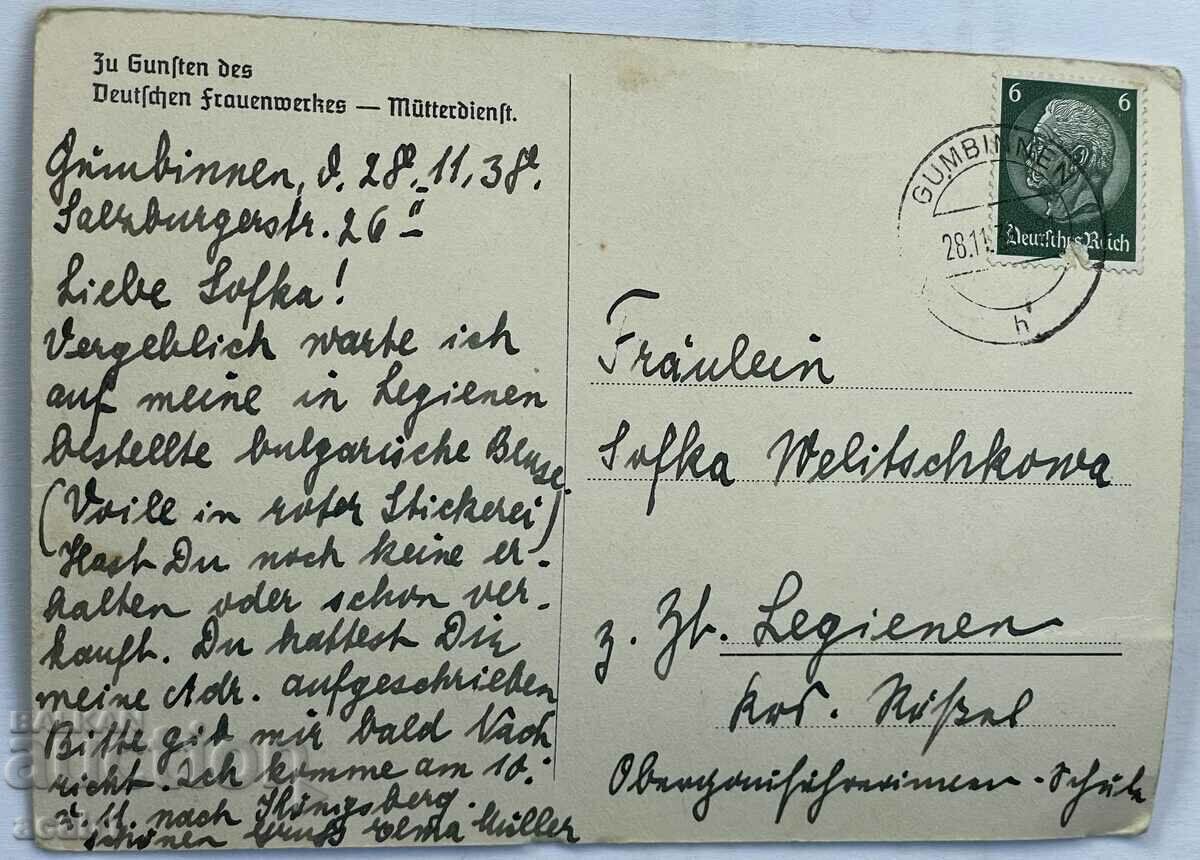 Zu Gunsten des
Deutschen Frauenwerkes — Mütterdienst.
Gumbinnen, d. 28. 11. 38.
Salzburgerstr. 26 II
Liebe Sofka!
Vergeblich warte ich
auf meine in Legienen
bestellte bulgarische Bluse.
(Voile in roter Stickerei)
Hast Du noch keine er-
halten oder schon ver-
kauft. Du hattest Dir
meine Adr. aufgeschrieben
Bitte gib mir bald Nach
richt. Ich komme am 10.
nach Königsberg.
Schönen Gruß Müller
6 6
Deutsches Reich
GUMBINNEN
28.11.
h
Fräulein
Sofka Welitschkowa
z. Zt. Legienen
Krs. Rößel
Obergauführerinnen-Schule
BALKAN
auction